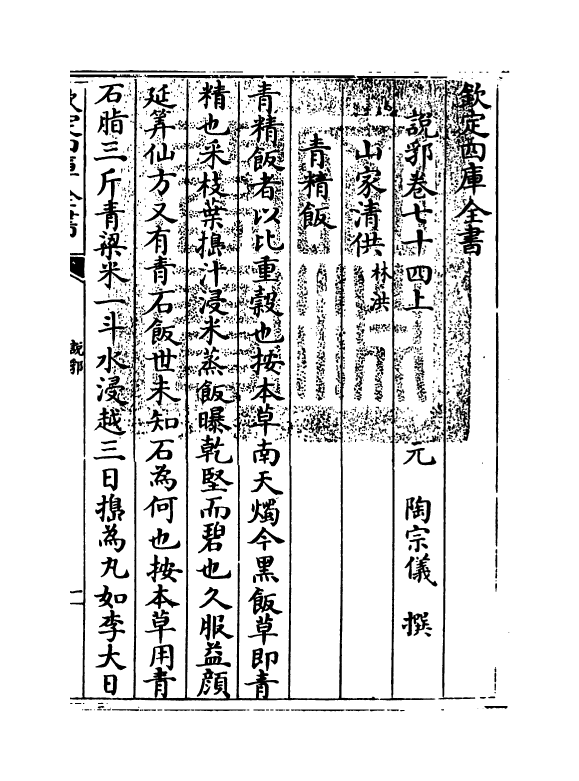 欽定四庫全書
說郛卷七十四上　元　陶宗儀　撰
山家清供林洪
青精飯
青精飯者以比重穀也按本草南天燭今黑飯草即青
精也采枝葉搗汁浸米蒸飯曝乾堅而碧也久服益顔
延筭仙方又有青石飯世未知石為何也按本草用青
石脂三斤青粱米一斗水浸越三日搗為丸如李大日
欽定四庫全書
說郛